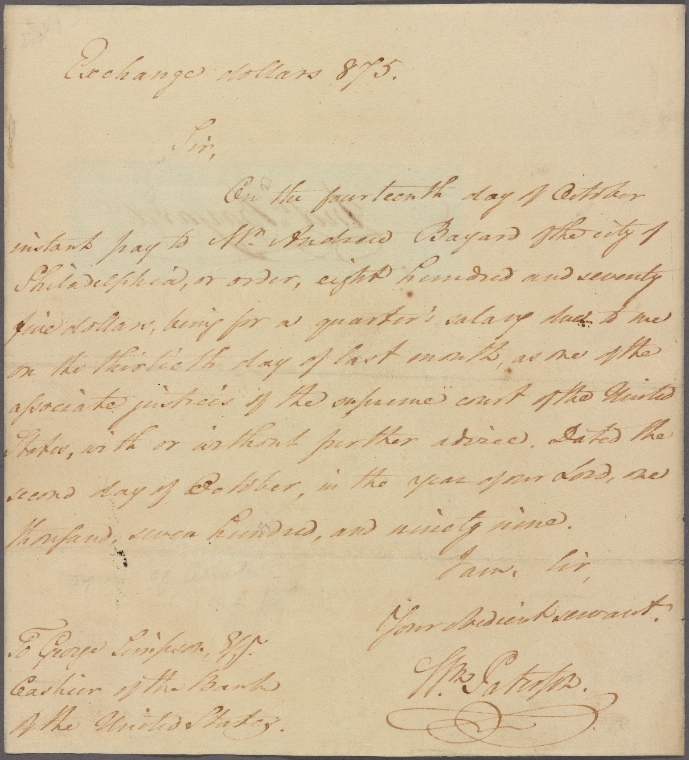 Exchange dollars 875.
Sir,
On the fourteenth day of October
instant pay to Mr. Andrew Bayard of the city of
Philadelphia, or order, eight hundred and seventy
five dollars, being for a quarter's salary due to me
on the thirtieth day of last month, as one of the
associate justices of the supreme court of the United
States, with or without further advice. Dated the
second day of October, in the year of our Lord, one
thousand, seven hundred, and ninety nine.
I am, Sir,
Your obedient servant.
Wm. Paterson.
To George Simpson, Esqr.
Cashier of the Bank
of the United States.